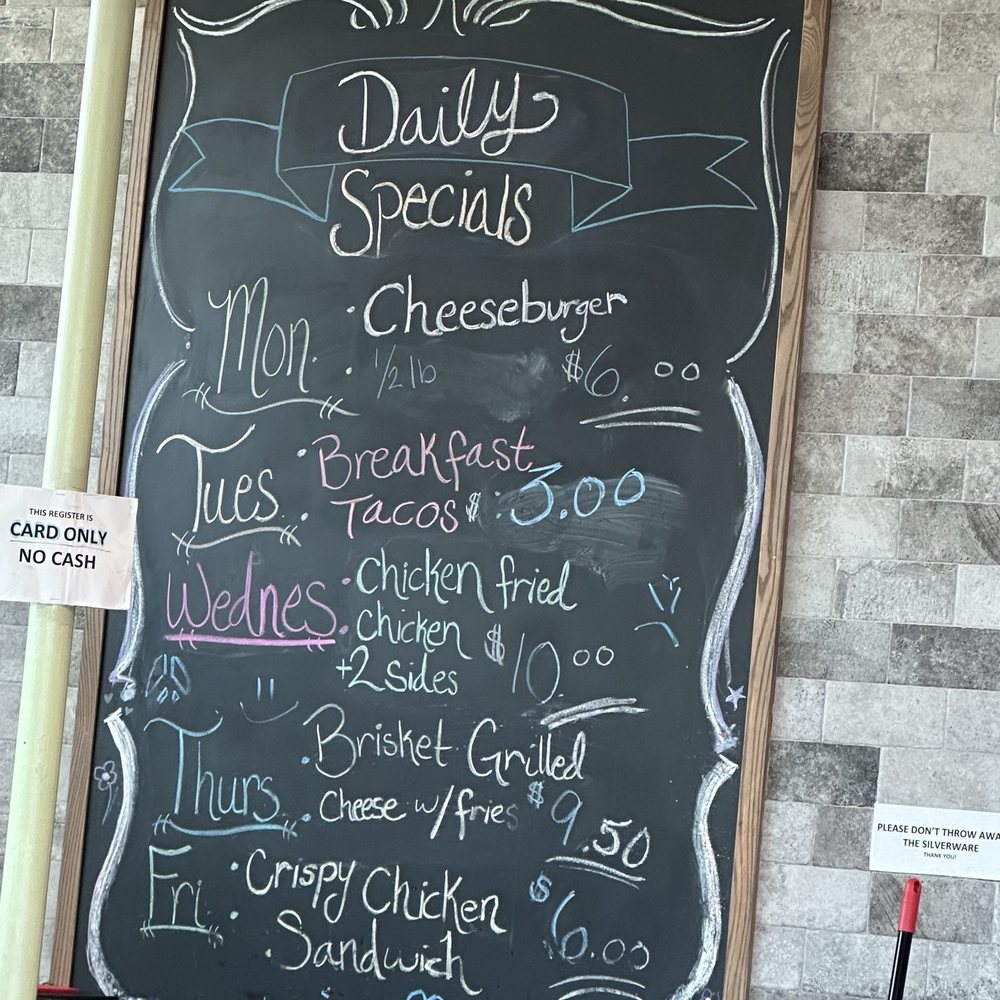 Daily
Specials
Mon • Cheeseburger
• 1/2 lb $6.00
Tues • Breakfast
Tacos $ 3.00
Wednes • Chicken fried
• Chicken
+2 Sides $10.00
Thurs • Brisket Grilled
• Cheese w/fries $9.50
Fri • Crispy Chicken
Sandwich $6.00
THIS REGISTER IS
CARD ONLY
NO CASH
PLEASE DON'T THROW AWA
THE SILVERWARE
THANK YOU!